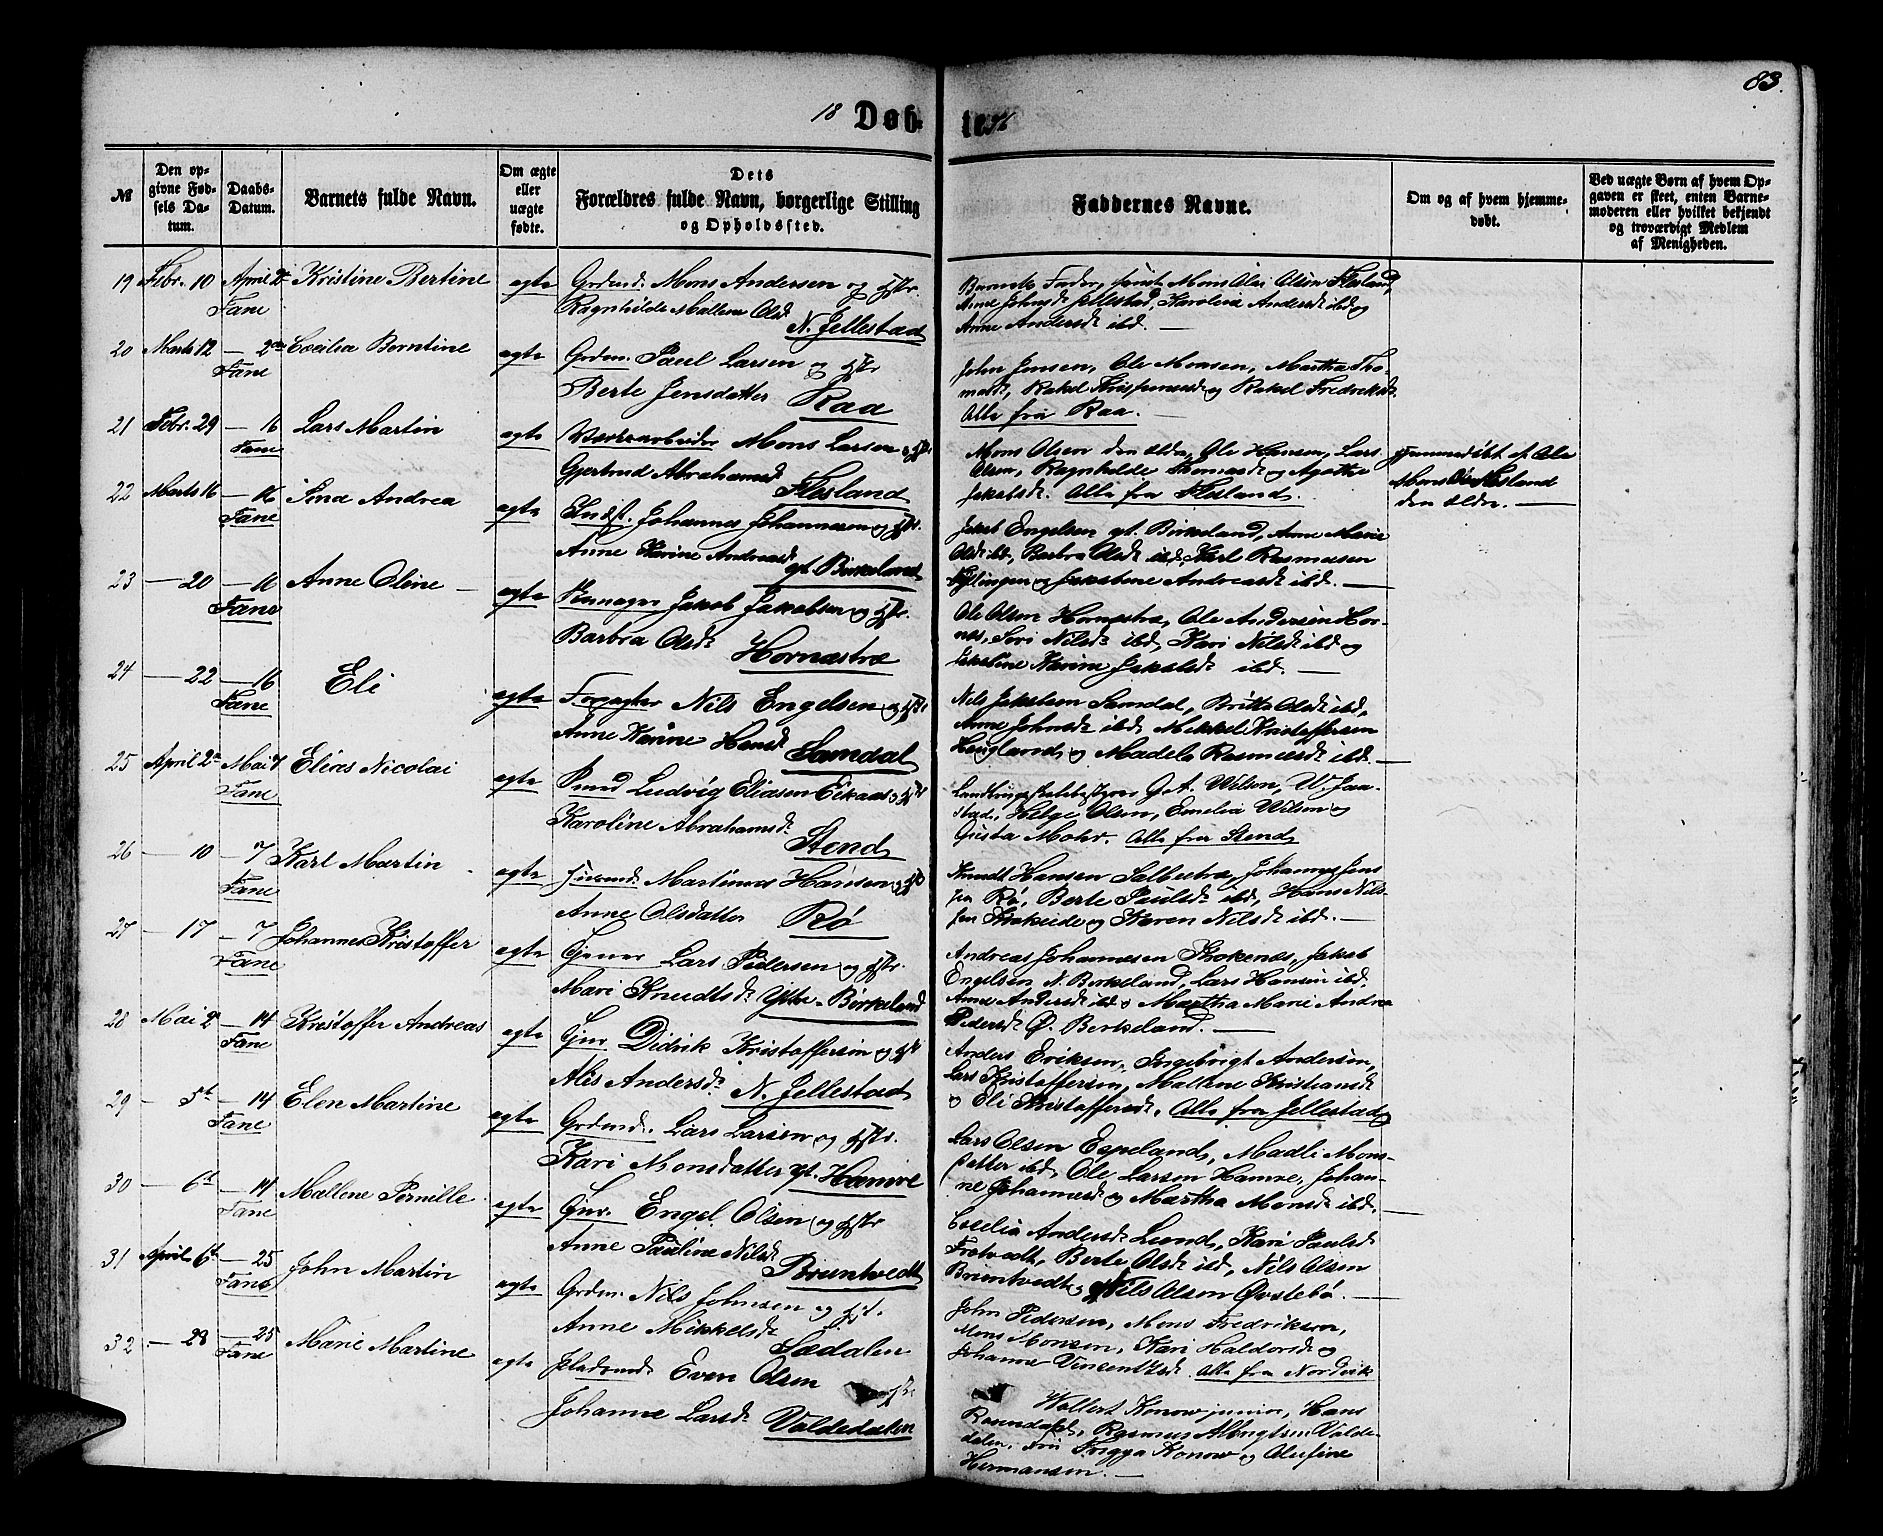 83.
18 Døb-
te.
№
Den op-
givne Fød-
sels Da-
tum.
Daabs-
Datum.
Barnets fulde Navn.
Om ægte
eller
uægte
fødte.
Dets
Forældres fulde Navn, borgerlige Stilling
og Opholdssted.
Faddernes Navne.
Om og af hvem hjemme-
døbt.
Ved uægte Børn af hvem Op-
gaven er skeet, enten Barne-
moderen eller hvilket bekjendt
og troværdigt Medlem
af Menigheden.
19 Febr. 10 April 2 Kristine Bertine ægte Grdmd. Mons Andersen og Hstr.
Fane Ragnhilde Mallene Olsd.
N. Jellestad
Barnets Fader, Mons Olsen Flesland,
Anne Johnsd. Jellestad, Karolea Andersd. ibd og
Anne Andersd. ibd. —
20 Marts 12 — 2 Cecilia Berntine ægte Grdm. Paul Larsen og Hstr
Fane Berte Jensdatter Raa
John Jensen, Ole Monsen, Martha Tho-
masd., Rakel og Rakel Fredriksd.
Alle fra Raa. —
21 Febr. 29 — 16 Lars Martin ægte Værksarbeider Mons Larsen og Hstr.
Fane Gjertrud Abrahamsd. Flesland
Mons Olsen den ældre, Ole Hansen, Lars
Olsen, Ragnhilde Thomasd. og Agathe
Jakobsd. Alle fra Flesland.
Hjemmedøbt af Ole
Mons Flesland
den ældre. —
22 Marts 16 — 16 Sina Andrea ægte Johannes Johannesen og Hstr.
Fane Anne Karine Andreasd. yt. Birkeland
Jakob Engelsen yt. Birkeland, Anne Marie
Olsd. ibd, Barbra Olsd. ibd, Karl Rasmussen
og Jakobine Andreasd. ibd. —
23 — 20 — 16 Anne Oline — ægte Jakob Jakobsen og Hstr.
Fane Barbra Olsd. Hornæstræ
Ole Olsen Hornæstræ, Ole Andersen Hor-
næs, Seri Nilsd. ibd, Kari Nilsd. ibd og
Jakobine Karine Jakobsd. ibd. —
24 — 22 — 16 Eli ægte Forpagter Nils Engelsen og Hstr.
Fane Anne Karine Hansd. Samdal
Nils Jakobsen Samdal, Britta Olsd. ibd,
Anne Johnsd. ibd, Mikkel Kristoffersen
Haugland og Madela Rasmusd. ibd. —
25 April 2 Mai 7 Elias Nicolai ægte Smed Ludvig Eliasen Eikaas og Hstr
Fane Karoline Abrahamsd. Stend
Landbrugsskolebestyrer G. A. Wilson, W. Jaa-
stad, Helge Olsen, Emelia Wilson og
Gusta Mohr. Alle fra Stend
26 — 10 — 7 Karl Martin ægte Huusmd. Martinus Hansen og Hst.
Fane Anne Olsdatter Rø
Knudt Hansen Salbustræ, Johannes Jens
fra Rø, Berte Paulsd. ibd, Hans Nils-
fra Krokeide og Karen Nilsd. ibd. —
27 — 17 — 7 Johannes Kristoffer ægte Tjener Lars Pedersen og Hstr.
Fane Mari Knudtsd. Ytre-Birkeland
Andreas Johannesen Krokenæs, Jakob
Engelsen N. Birkeland, Lars Hansen ibd,
Anne Andersd. ibd og Martha Marie Andrea
Pedersd. Ø. Birkeland. —
28 Mai 2 — 14 Kristoffer Andreas ægte Gjnr. Didrik Kristoffersen og Hst
Fane Alis Andersd. N. Jellestad
Anders Eriksen, Ingebrigt Andersen,
Lars Kristoffersen, Mallene Kristiansd.
og Eli Kristoffersd. Alle fra Jellestad
29 — 5 — 14 Elen Martine ægte Grdmd. Lars Larsen og Hstr.
Fane Kari Monsdatter yt. Hamre
Lars Olsen Espeland, Madli Mons-
datter ibd, Ole Larsen Hamre, Johan-
ne Johannesd. og Martha Monsd. ibd. —
30 — 6 — 14 Mallene Pernille ægte Gjnr. Engel Olsen og Hstr
Fane Anne Pauline Nilsd. Bruntvedt
Cecelia Andersd. Lund, Kari Paulsd.
Tretvedt, Berte Olsd. ibd, Nils Olsen
Bruntvedt og Nils Olsen Øvstebø. —
31 April 6 — 25 John Martin ægte Grdm. Nils Johnsen og Hst.
Fane Anne Mikkelsd. Sædalen
John Pedersen, Mons Fredriksen,
Mons Monsen, Kari Haldorsd. og
Johanne Vinsentzsd. Alle fra Nordvik
32 — 28 — 25 Marie Martine ægte Pladsmd. Even Olsen og Hstr
Fane Johanne Larsd. Valdedalen
Wollert Konow junior, Hans
Rosendahl, Rasmus Valde-
dalen, Fru Frigga Konow og Olufine
Hermansen. —